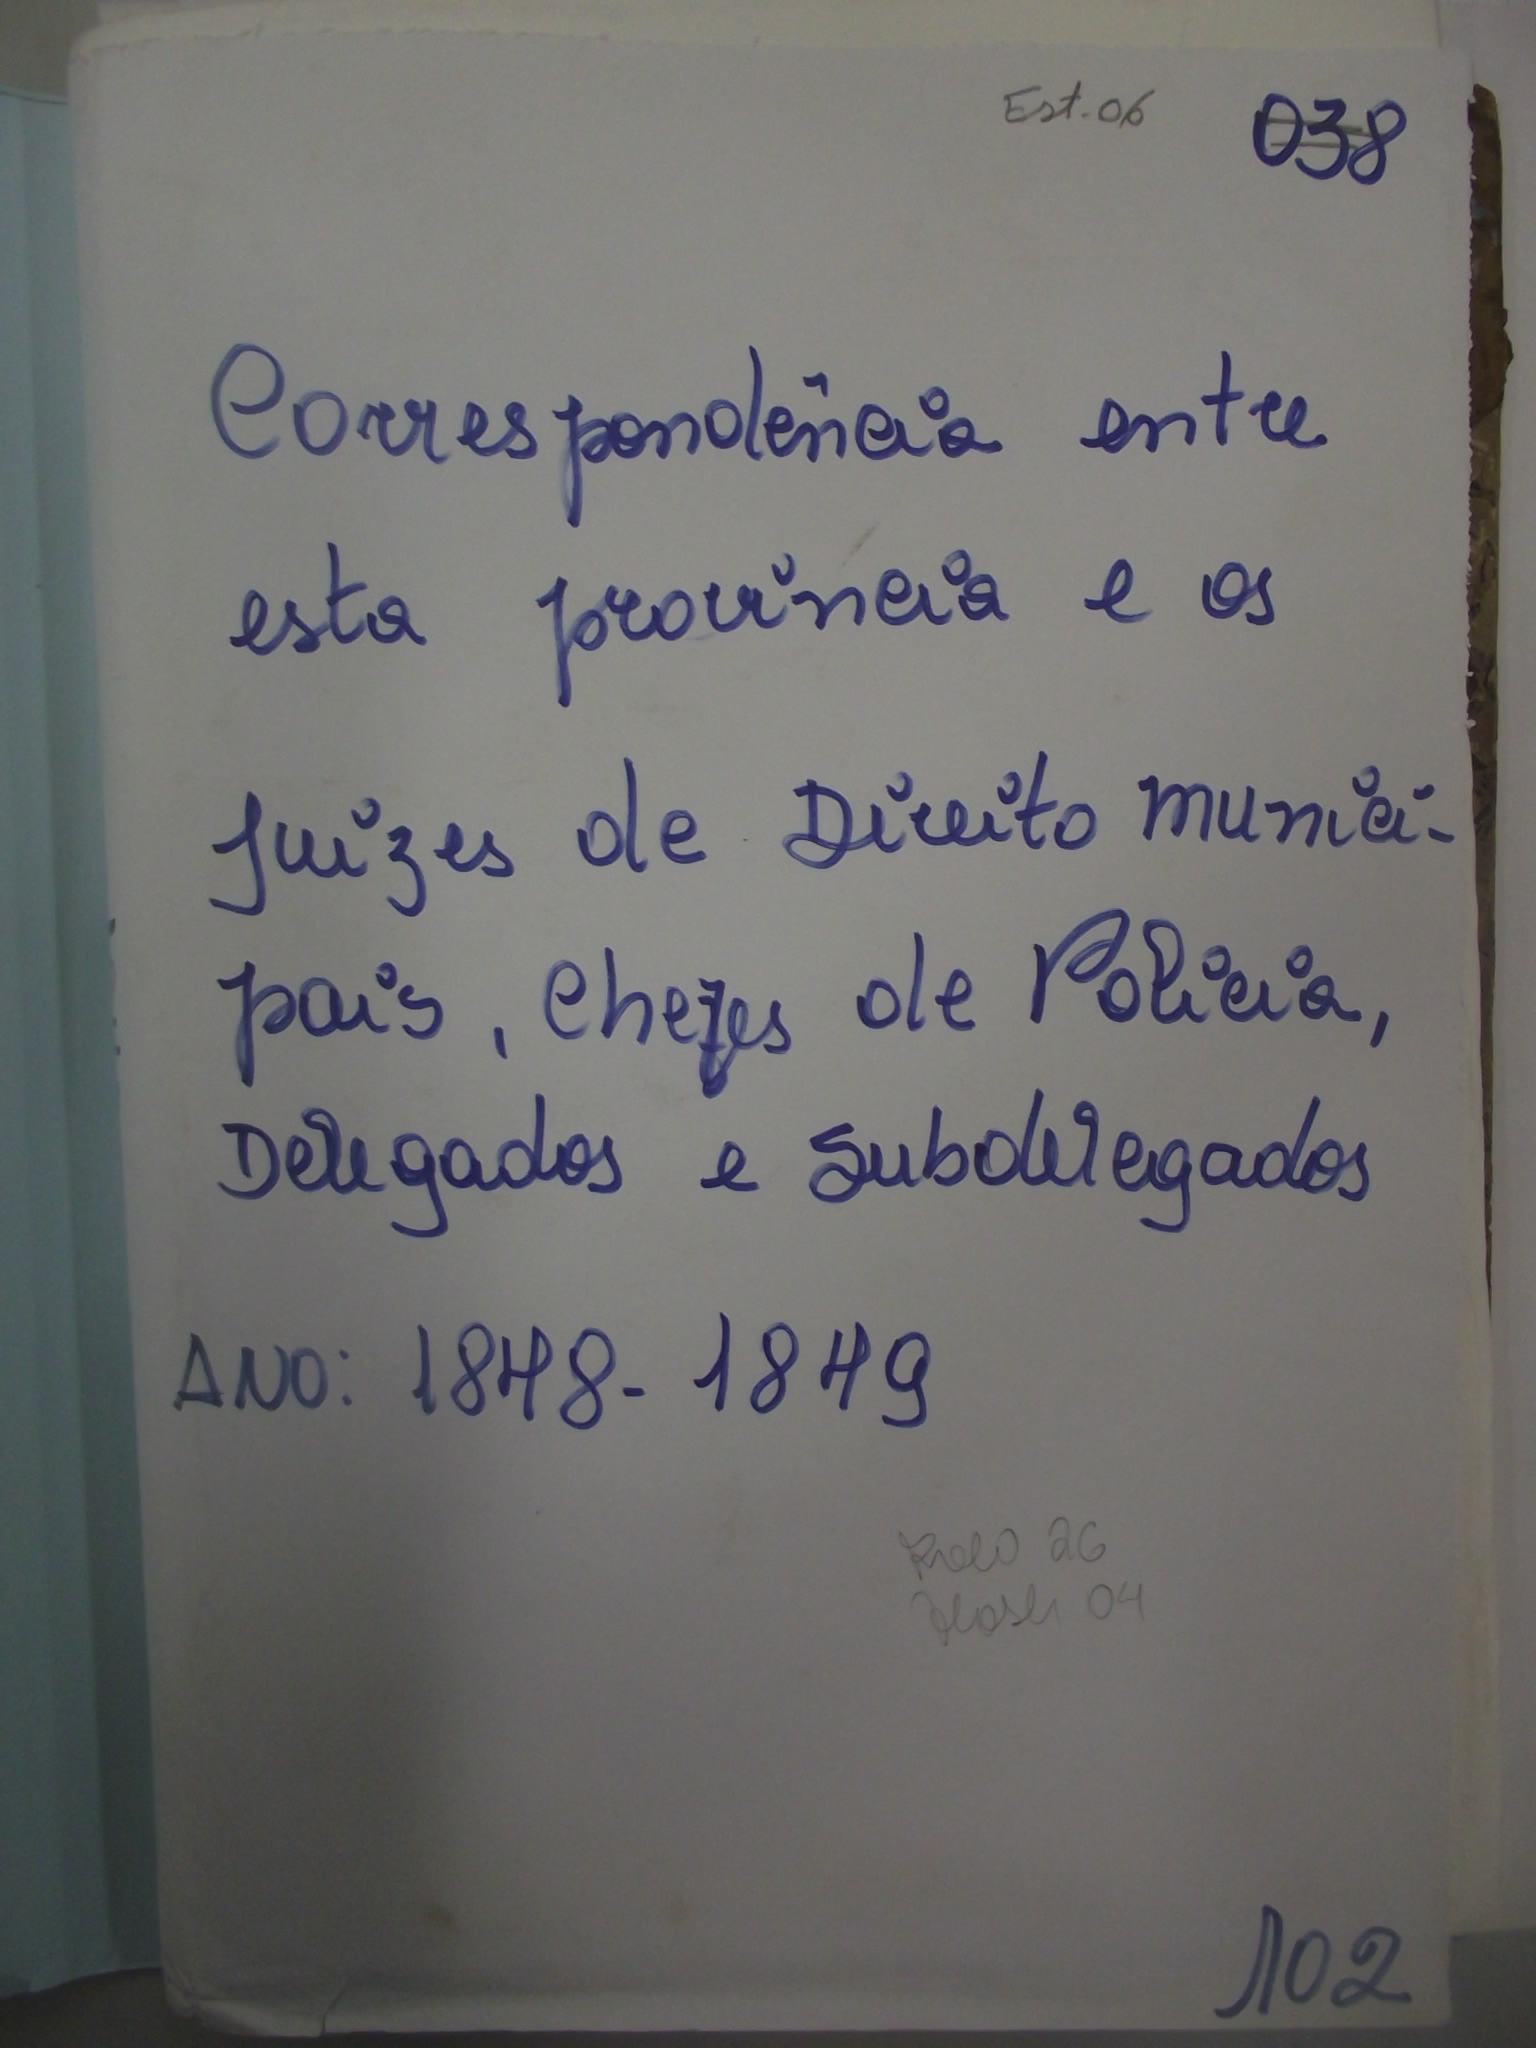 Est. 06 038
Correspondência entre
esta província e os
Juizes de Direito Munici-
pais, Chefes de Polícia,
Delegados e Subdelegados
ANO: 1848-1849
Rolo 26
Flash 04
102